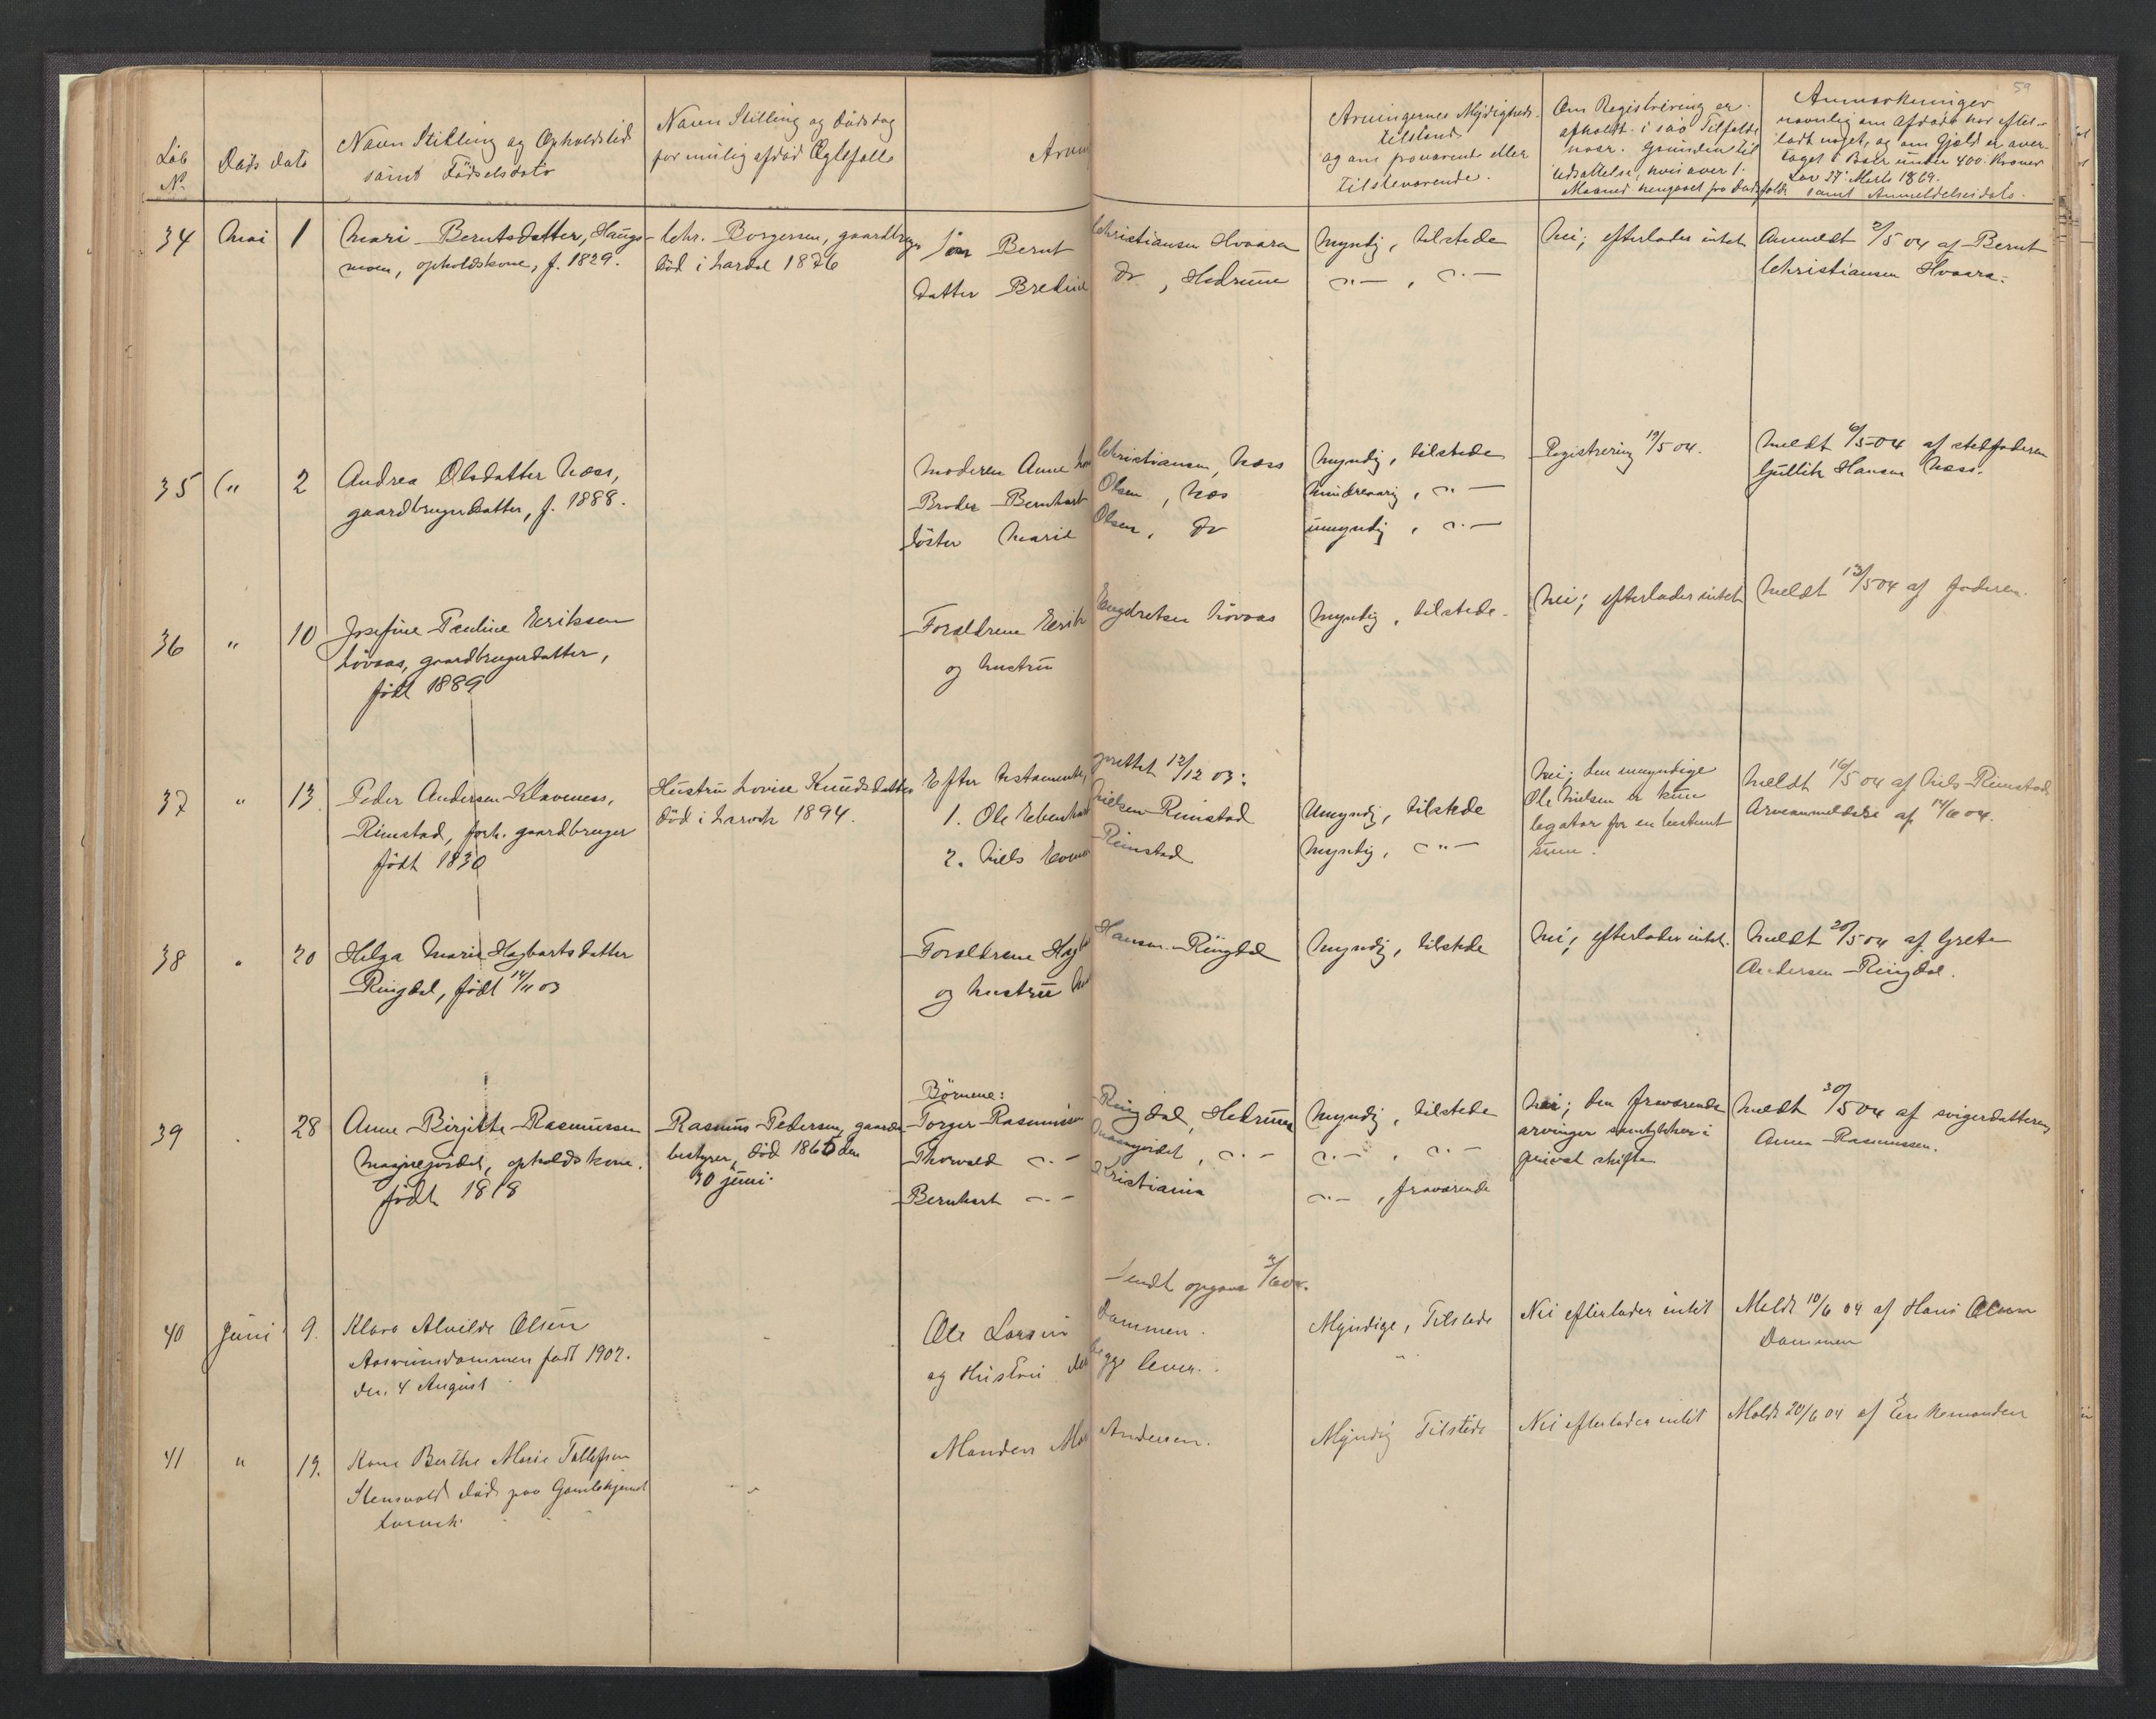 59
Løb
No
Døds dato
Navn Stilling og Opholdstid
samt Fødselsdato
Navn Stilling og Dødsdag
for mulig afdød Ægtefælle
Arvin
Arvingernes Myndigheds-
tilstand
og om fraværende eller
tilsteværende.
Om Registrering er
afholdt i saa Tilfælde
naar. Grunden til
Udsættelse, hvis over 1
Maaned hengaaet fra Dødsfaldt
Anmærkninger
navnlig om Afdøde har efter-
ladt noget, og om Gjæld er over-
taget i Boer under 400 Kroner
Lov 27 Marts 1869.
samt Anmeldelsesdato.
34 Mai 1 Mari Berntsdatter, Haugs-
moen, opholdskone, f. 1829.
Chr. Borgersen, gaardbruger
død i Lardal 1876
Søn Bernt Christiansen Hvaara
datter Bredine Do, Hedrum
Myndig, tilstede
—"— , —"—
Nei; efterlader intet
Anmeldt 2/5 04 af Bernt
Christiansen Hvaara.
35 " 2 Andrea Olsdatter Næss,
gaardbrugerdatter, f. 1888.
Moderen Anne Christiansen, Næss
Broder Bernhart Olsen, Næs
Søster Marie Olsen, Do
Myndig, tilstede
Mindreaarig, —"—
umyndig, —"—
Registrering 19/5 04.
Meldt 6/5 04 af stedfaderen
Gullik Hansen Næss.
36 " 10 Josefine Pauline Eriksen
Løvaas, gaardbrugerdatter,
født 1889
Forældrene Erik Engdretsen Løvaas
og hustru
Myndig, tilstede
Nei; efterlader intet
Meldt 13/5 04 af faderen.
37 " 13 Peder Andersen Klaveness,
Rimstad, forh. gaardbruger
født 1830
Hustru Lovise Knudsdatter
død i Larvik 1894.
Efter testamente, oprettet 12/12 03:
1. Ole Edenhart Nielsen Rimstad
2. Niels Rimstad
Umyndig, tilstede
Myndig, —"—
Nei; den umyndige
Ole Nielsen er kun
legatar for en bestemt
sum.
Meldt 16/5 04 af Niels Rimstad
Arveanmeldelse af 14/6 04.
38 " 20 Helga Marie Hagbartsdatter
Ringdal, født 14/11 03
Forældrene Hag Hansen Ringdal
og hustru
Myndig, tilstede
Nei; efterlader intet.
Meldt 20/5 04 af Grete
Andersen Ringdal.
39 " 28 Anne Birgitte Rasmussen
opholdskone.
født 1818
Rasmus Pedersen, gaards-
bestyrer, død 1865 den
30 juni.
Børnene:
Torger Rasmussen Ringdal, Hedrum
Thorvald —"— , —"—
Bernhart —"— Kristiania
Myndig, tilstede
—"— , —"—
—"— , fraværende
Nei; den fraværende
arvinger samtykker i
privat skifte
Meldt 30/5 04 af svigerdatteren
Anna Rasmussen.
Sendt opgave 2/6 04.
40 Juni 9. Klara Alvilde Olsen
Aasrumsdammen født 1902.
den 4 August
Ole Larsen Dammen.
og Hustru begge lever.
Myndige, Tilstede
"
Nei efterlader intet
Meldt 10/6 04 af Hans Olsen
Dammen
41 " 19. Kone Berthe Marie Tollefsen
Stensvold død paa Gamlehjemmet
Larvik.
Manden Andersen.
Myndig Tilstede
Nei efterlader intet
Meldt 20/6 04 af Enkemanden